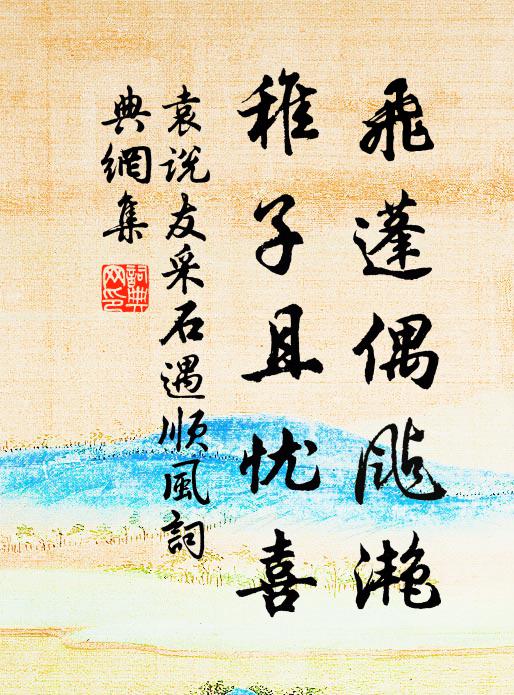 飛蓬偶颭滟
稚子且忧喜
袁说友采石遇順風詞
典網集
詞典
网印